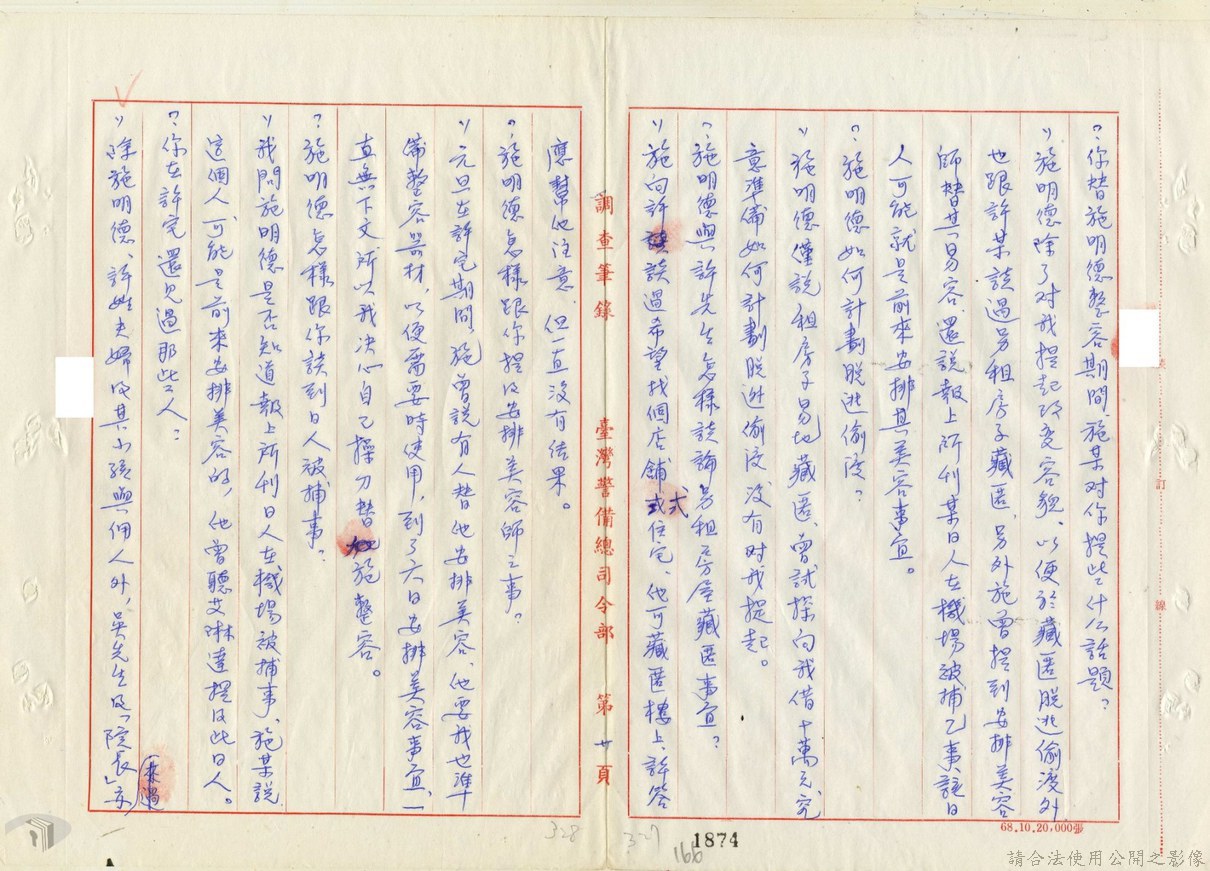 ？你替施明德整容期間、施某对你提些什么話題？
：施明德除了对我提起改变容貌、以便於藏匿脱逃偷渡外
也跟許某談過另租房子藏匿、另外施曾提到安排美容
師替其易容、還說報上所刊某日人在機場被捕乙事該日
人可能就是前來安排其美容事宜。
？施明德如何計劃脱逃偷渡？
：施明德僅說租房子易地藏匿、曾試探向我借十萬元、究
意準備如何計劃脱逃偷渡没有对我提起。
？施明德與許先生怎樣談論另租房屋藏匿事宜？
：施向許談過希望找個店舖式住宅、他可藏匿樓上、許答
調查筆錄 臺灣警備總司令部 第廿頁
應幫他注意、但一直没有结果。
？施明德怎樣跟你提及安排美容師之事？
：元旦在許宅期間、施曾說有人替他安排美容、他要我也準
備整容器材、以便需要時使用，到了六日安排美容事宜、一
直無下文所以我决心自己操刀替施整容。
？施明德怎樣跟你談到日人被捕事？
：我問施明德是否知道報上所刊日人在機場被捕事、施某說
這個人可能是前來安排美容的，他曾聽艾琳達提及此日人。
？你在許宅還見過那些人？
：除施明德、許姓夫婦及其小孩與佣人外，吳先生及「院長」亦
（來過）
裝
訂
線
68.10.20,000張
328
327
166
1874
請合法使用公開之影像